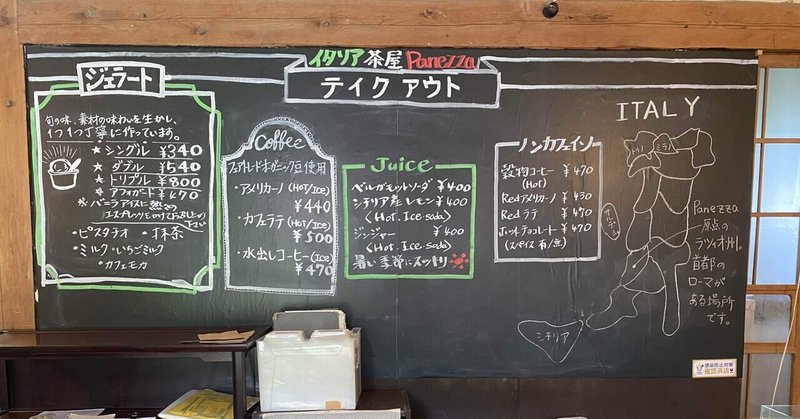 イタリア茶屋 Panezza
テイクアウト
ジェラート
旬の味、素材の味わいを生かし、
1つ1つ丁寧に作っています。
★シングル ¥340
★ダブル ¥540
★トリプル ¥800
★アフォガード ¥470
※バニラアイスに熱々
・ピスタチオ ・抹茶
・ミルク・いちごミルク
・カフェモカ
Coffee
フェアトレードオーガニック豆使用
・アメリカーノ(Hot/Ice)
¥440
・カフェラテ(Hot/Ice)
¥500
・水出しコーヒー(Ice)
¥470
Juice
ベルガモットソーダ ¥400
シチリア産レモン ¥400
(Hot. Ice. soda)
ジンジャー ¥400
(Hot. Ice. soda)
暑い季節にスッキリ
ノンカフェイン
穀物コーヒー ¥470
(Hot)
Redアメリカーノ ¥430
Red ラテ ¥470
ホットチョコレート ¥470
(スパイス有/無)
ITALY
ミラノ
シチリア
Panezza
原点の
ラツィオ州。
首都の
ローマが
ある場所
です。
感染防止対策
確認済店